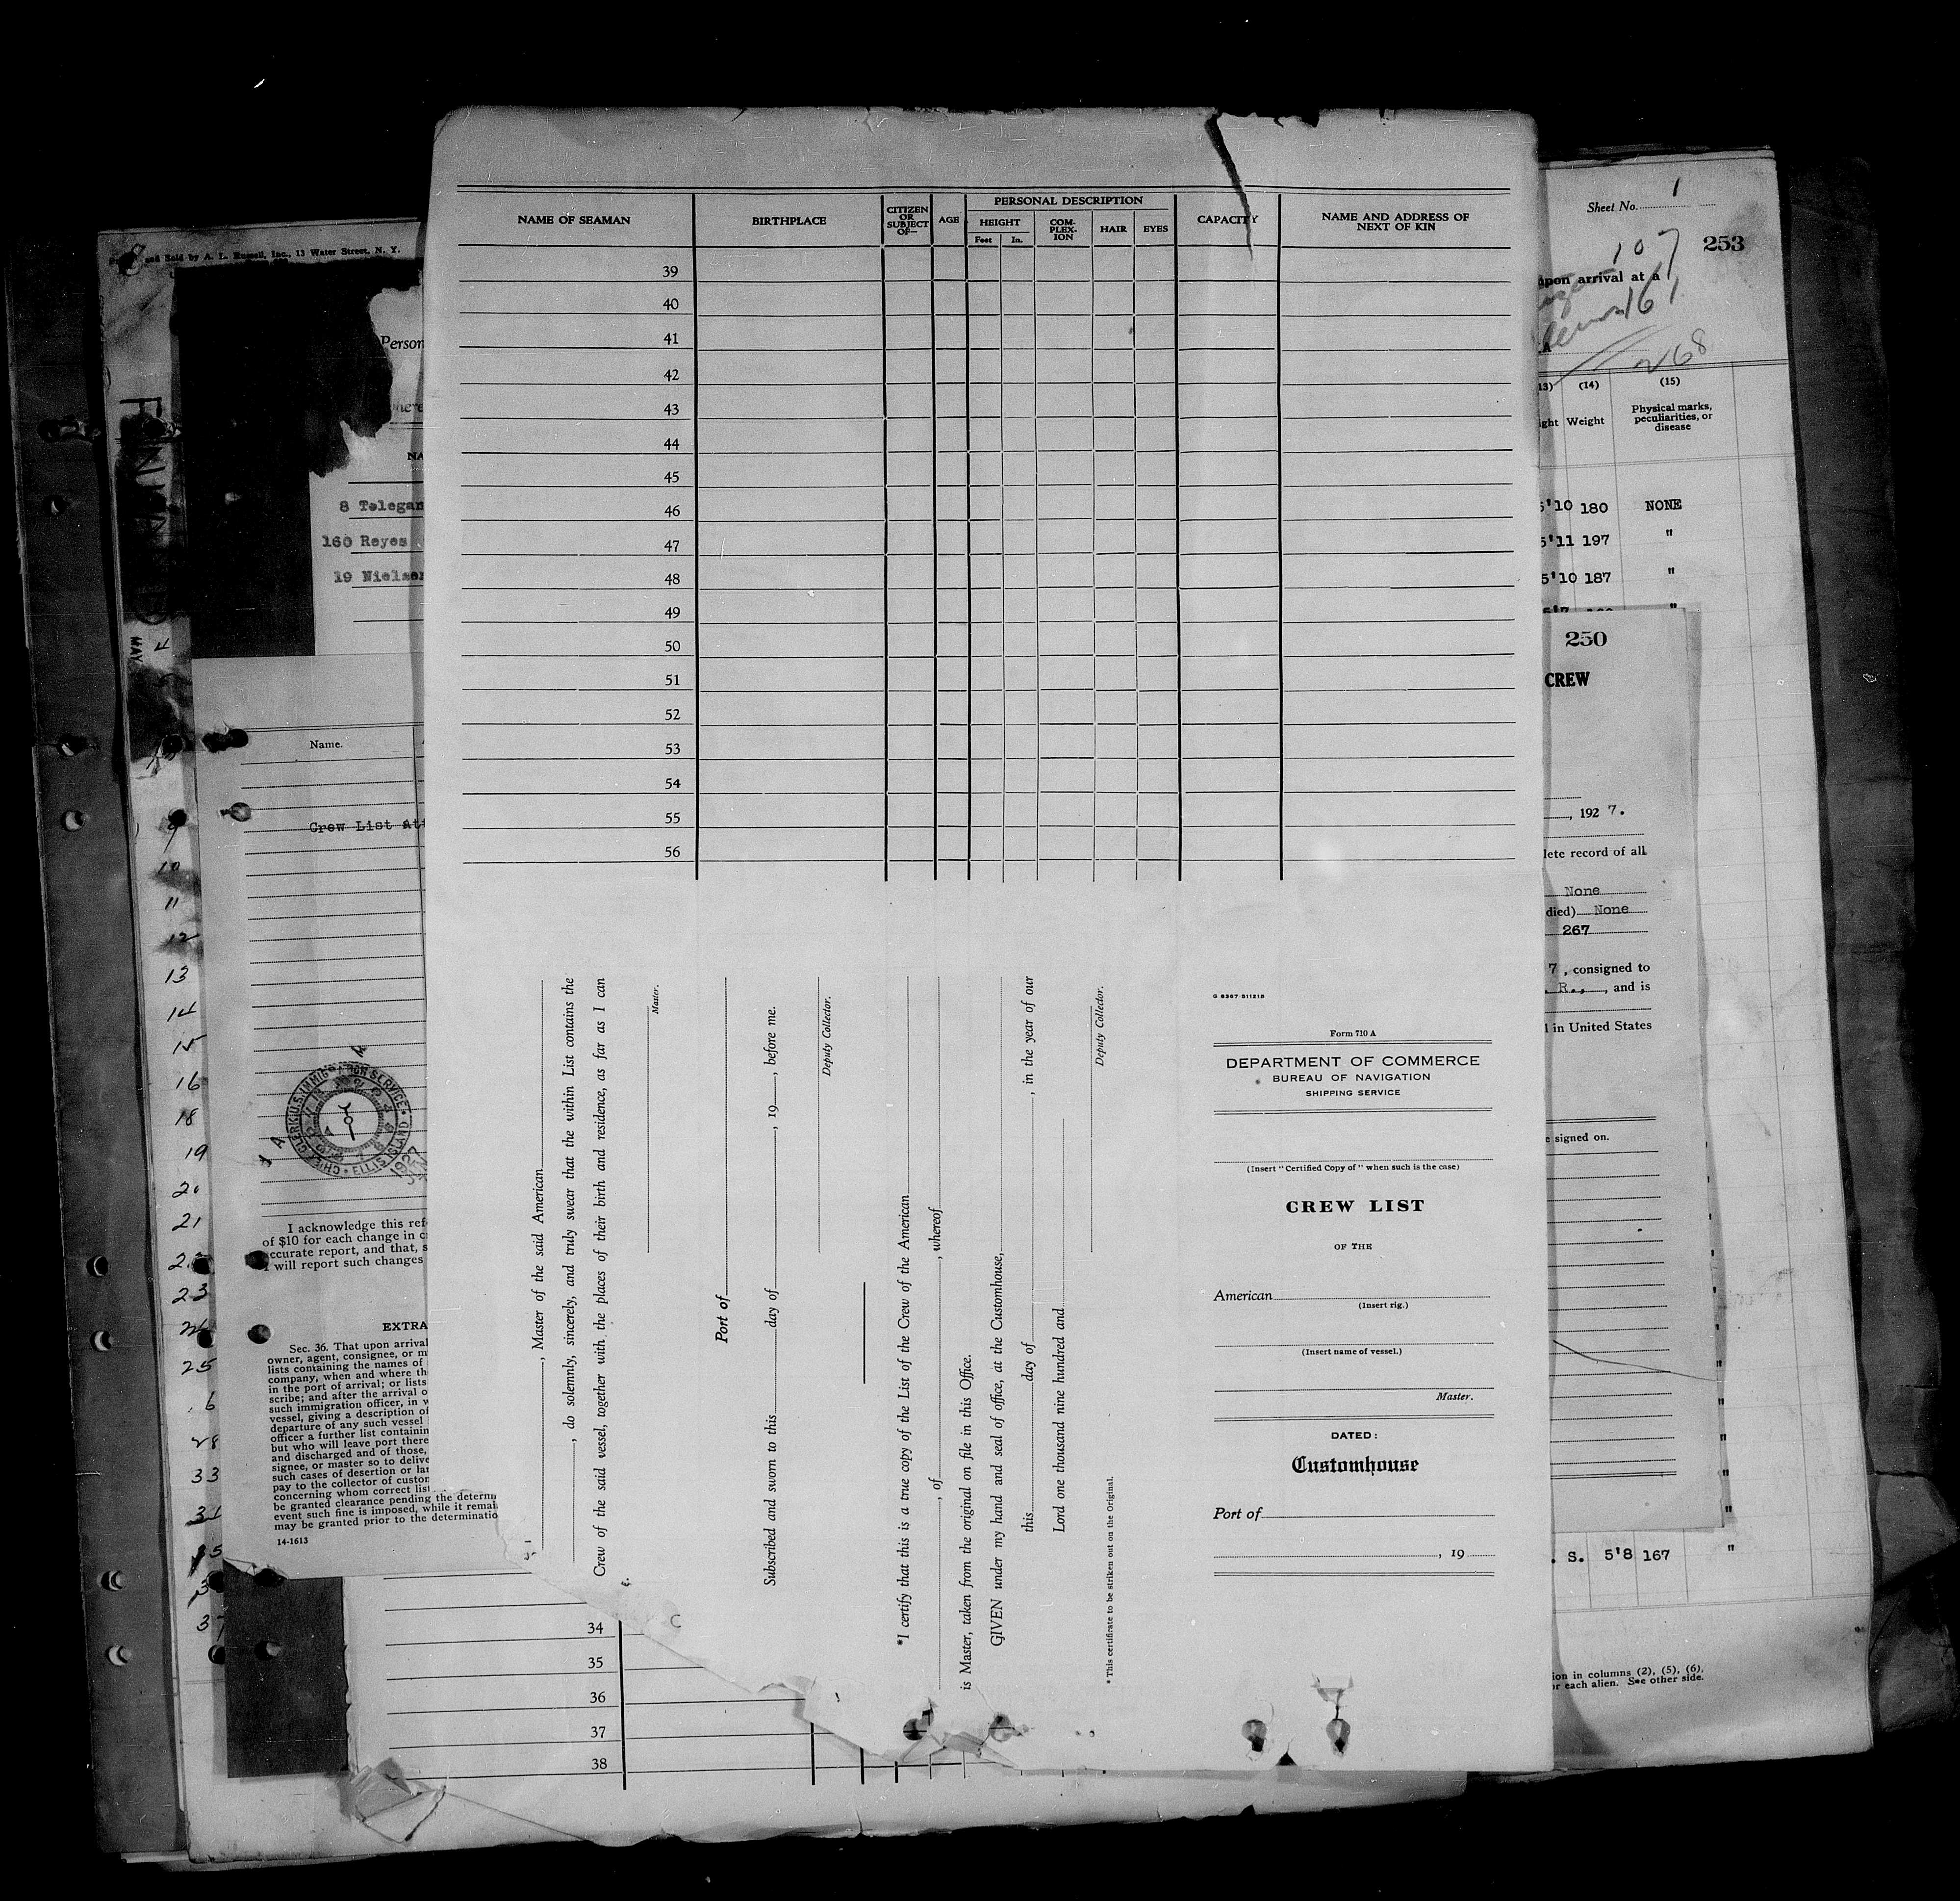 and Sold by A. L. Russell, Inc., 13 Water Street, N. Y.
Person
NA
8 Telegan
160 Reyes
19 Nielsen
MAY
Name.
Crew List att
9
10
11
12
13
14
15
16
18
19
20
21
23
25
6
28
33
31
CHIEF CLERK U.S. IMMIGRATION SERVICE
ELLIS ISLAND
1927
I acknowledge this ref
of $10 for each change in c
accurate report, and that, s
I will report such changes
EXTRA
Sec. 36. That upon arrival
owner, agent, consignee, or m
lists containing the names of
company, when and where th
in the port of arrival; or lists
scribe; and after the arrival o
such immigration officer, in w
vessel, giving a description of
departure of any such vessel
officer a further list containin
but who will leave port there
and discharged and of those,
signee, or master so to delive
such cases of desertion or lan
pay to the collector of custom
concerning whom correct list
be granted clearance pending the determin
event such fine is imposed, while it remai
may be granted prior to the determinatio
14-1613
34
35
36
37
38
NAME OF SEAMAN
BIRTHPLACE
CITIZEN OR SUBJECT OF—
AGE
PERSONAL DESCRIPTION
HEIGHT
Feet
In.
COM-PLEX-ION
HAIR
EYES
CAPACITY
NAME AND ADDRESS OF NEXT OF KIN
39
40
41
42
43
44
45
46
47
48
49
50
51
52
53
54
55
56
, Master of the said American
, do solemnly, sincerely, and truly swear that the within List contains the
Crew of the said vessel, together with the places of their birth and residence, as far as I can
Master.
Port of
Subscribed and sworn to this day of , 19 , before me.
Deputy Collector.
*I certify that this is a true copy of the List of the Crew of the American
, of , whereof
is Master, taken from the original on file in this Office.
GIVEN under my hand and seal of office, at the Customhouse,
this day of , in the year of our
Lord one thousand nine hundred and
Deputy Collector.
* This certificate to be striken out on the Original.
G 8367 511215
Form 710 A
DEPARTMENT OF COMMERCE
BUREAU OF NAVIGATION
SHIPPING SERVICE
(Insert "Certified Copy of" when such is the case)
CREW LIST
OF THE
American
(Insert rig.)
(Insert name of vessel.)
Master.
DATED:
Customhouse
Port of
, 19
Sheet No. 1
253
107
upon arrival at a
161
268
13) (14) (15)
ight Weight Physical marks, peculiarities, or disease
5'10 180 NONE
5'11 197 "
5'10 187 "
250
CREW
, 1927.
lete record of all
None
died) None
267
7, consigned to
R., , and is
l in United States
e signed on.
. S. 5'8 167 "
ion in columns (2), (5), (6),
or each alien. See other side.